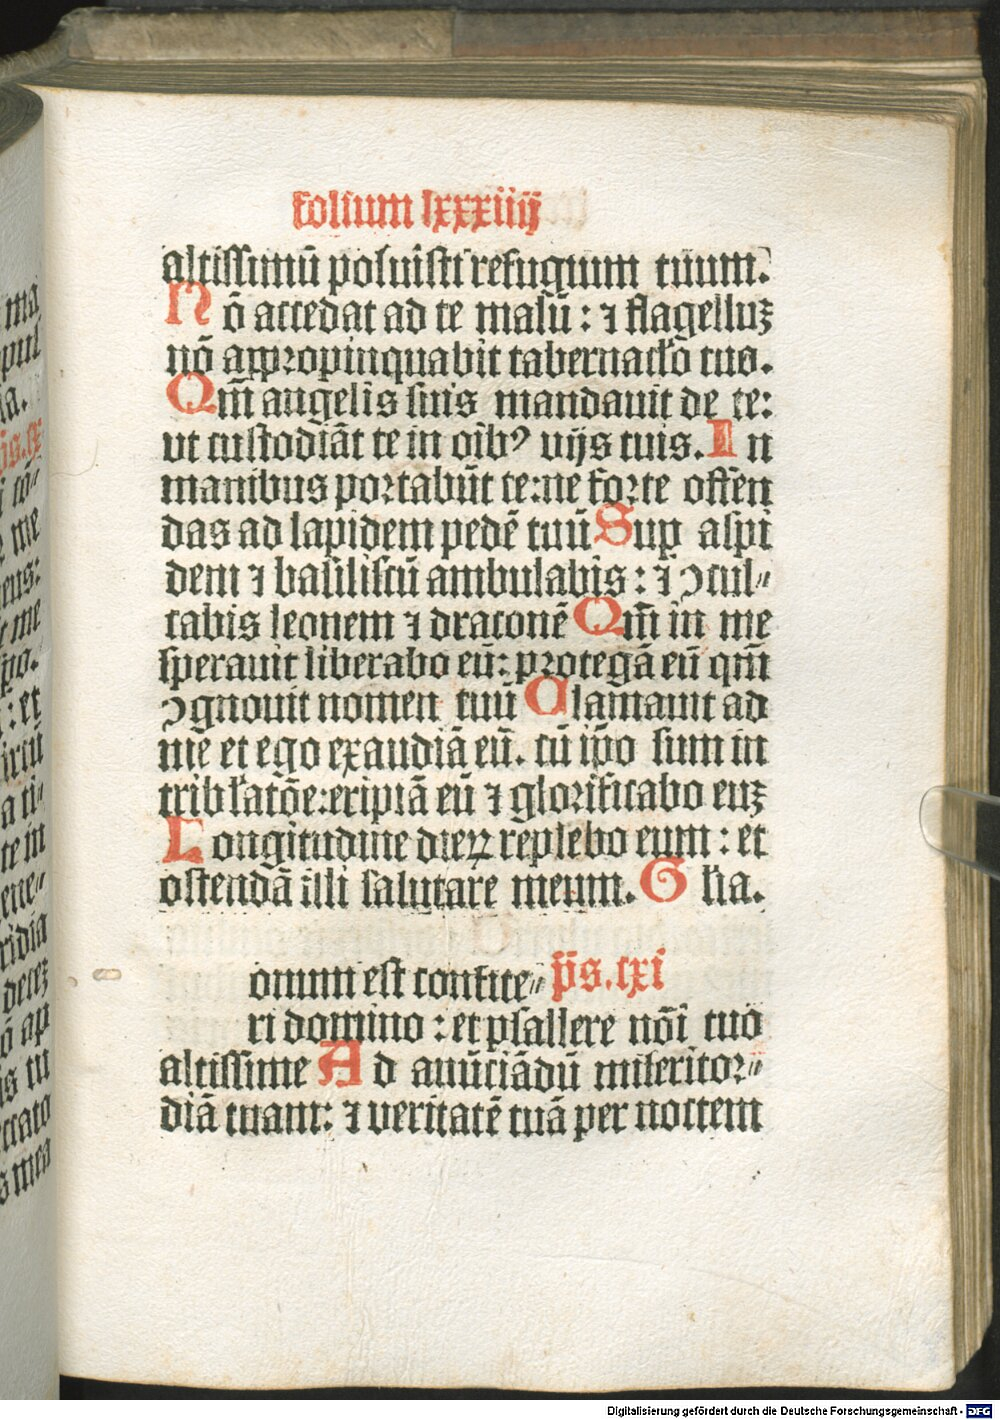 folium lxxxiiij
altissimū posuisti refugium tuum.
Nō accedat ad te malū : ⁊ flagelluꝫ
nō appropinquabit tabernacl̄o tuo.
Qm̄ angelis suis mandauit de te:
ut custodiāt te in oībꝰ uijs tuis. In
manibus portabūt te:ne forte offen
das ad lapidem pedē tuū Sup aspi
dem ⁊ basiliscū ambulabis : ⁊ ꝯcul⸗
cabis leonem ⁊ draconē Qm̄ in me
sperauit liberabo eū: protegā eū qm̄
ꝯgnouit nomen tuū Clamauit ad
me et ego exaudiā eū. cū ip̄o sum in
tribl̄atōe:eripiā eū ⁊ glorificabo euꝫ
Longitudine dieꝝ replebo eum : et
ostendā illi salutare meum. Gl̄ia.
onum est confite⸗ p̄s. cxi
ri domino : et psallere nōi tuo
altissime Ad anūciādū misericor⸗
diā tuam: ⁊ ueritatē tuā per noctem
Digitalisierung gefördert durch die Deutsche Forschungsgemeinschaft - DFG